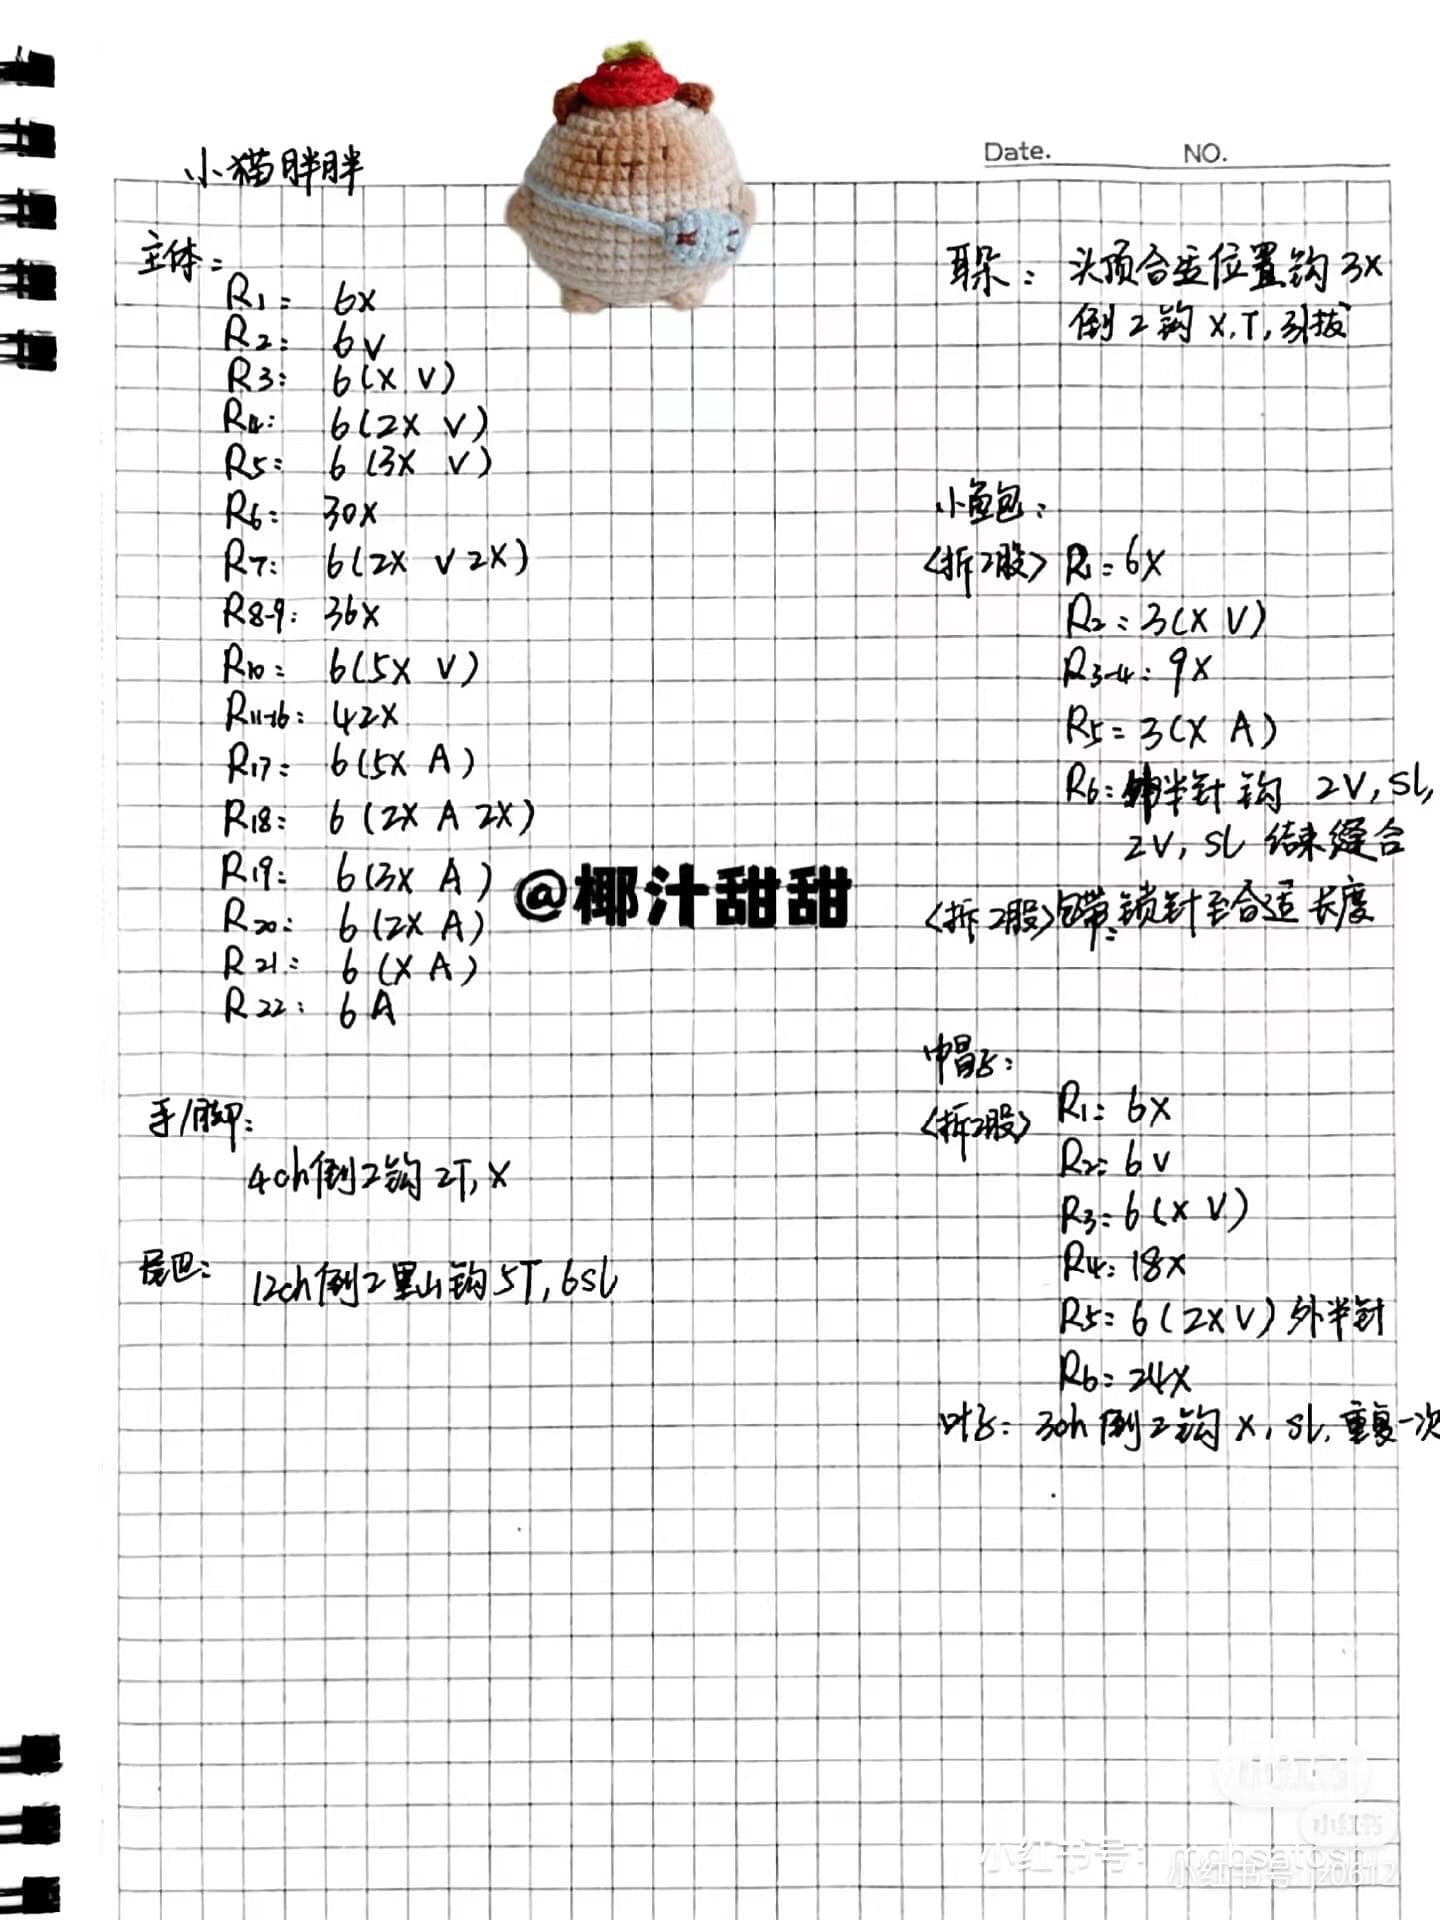 小猫胖胖
Date.
NO.
主体:
R1: 6X
R2: 6V
R3: 6(X V)
R4: 6(2X V)
R5: 6(3X V)
R6: 30X
R7: 6(2X V 2X)
R8-9: 36X
R10: 6(5X V)
R11-16: 42X
R17: 6(5X A)
R18: 6(2X A 2X)
R19: 6(3X A)
R20: 6(2X A)
R21: 6(X A)
R22: 6A
@椰汁甜甜
手/脚:
4ch倒2钩2T,X
尾巴: 12ch倒2里山钩5T,6sl
耳朵: 头顶合适位置钩3X
倒2钩X,T,引拔
小鱼包:
<拆2股> R1: 6X
R2: 3(X V)
R3-4: 9X
R5: 3(X A)
R6: 外半针钩 2V, SL,
2V, SL 结束缝合
<拆2股>包带:锁针至合适长度
帽子:
<拆2股> R1: 6X
R2: 6V
R3: 6(X V)
R4: 18X
R5: 6(2X V)外半针
R6: 24X
叶子: 3ch倒2钩X, SL, 重复一次
小红书
小红书
小红书号:
小红书号